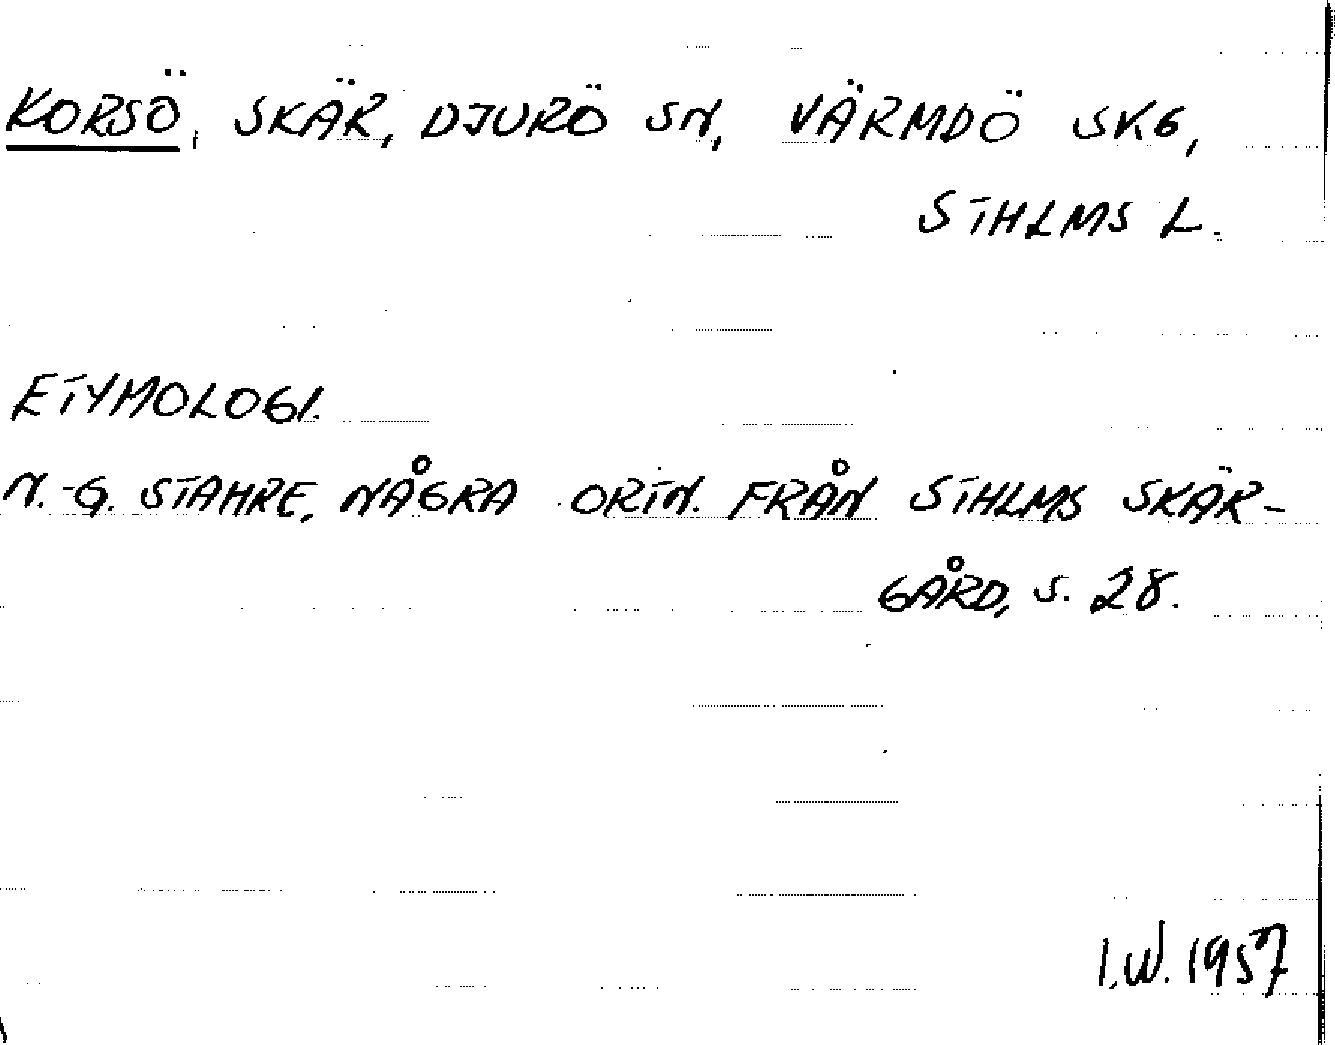 KORSÖ, SKÄR, DJURÖ SN, VÄRMDÖ SKG,
STHLMS L.
ETYMOLOGI.
N.-G. STAHRE, NÅGRA ORTN. FRÅN STHLMS SKÄR-
GÅRD, S. 28.
I.W. 1957